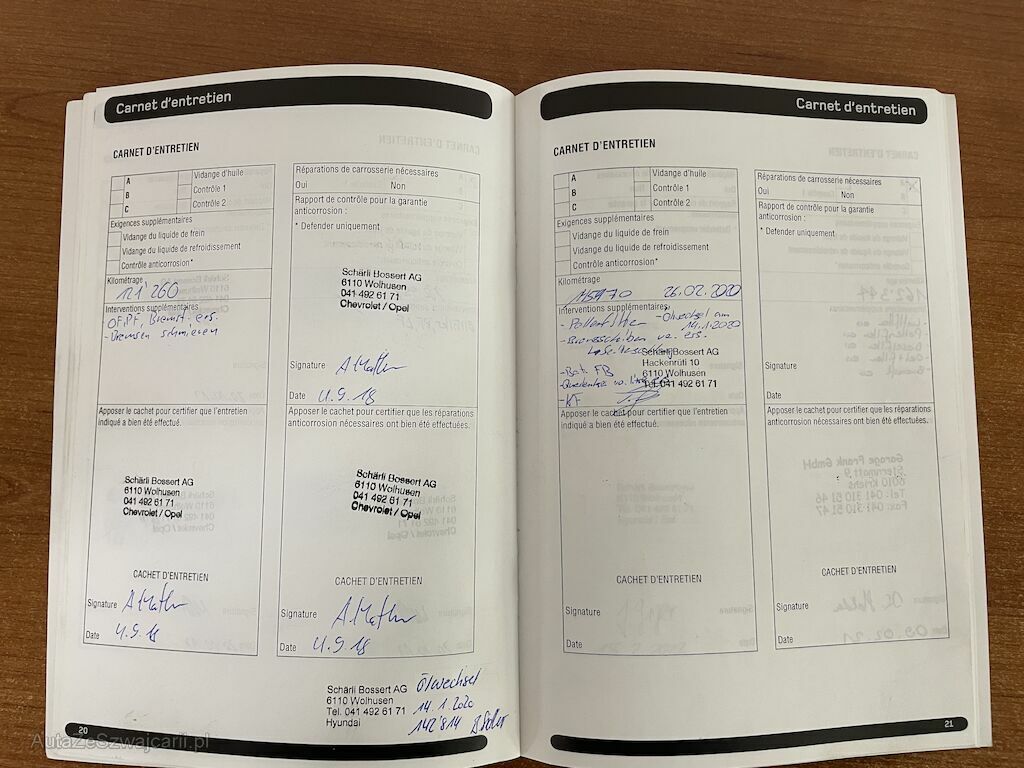 Carnet d'entretien
CARNET D'ENTRETIEN
A
B
C
Vidange d'huile
Contrôle 1
Contrôle 2
Exigences supplémentaires
Vidange du liquide de frein
Vidange du liquide de refroidissement
Contrôle anticorrosion*
Kilométrage
121'260
Interventions supplémentaires
- Bremsen schmieren
Apposer le cachet pour certifier que l'entretien
indiqué a bien été effectué.
Schärli Bossert AG
6110 Wolhusen
041 492 61 71
Chevrolet / Opel
CACHET D'ENTRETIEN
Signature
Date 4.9.18
Réparations de carrosserie nécessaires
Oui Non
Rapport de contrôle pour la garantie
anticorrosion :
* Defender uniquement
Schärli Bossert AG
6110 Wolhusen
041 492 61 71
Chevrolet / Opel
Signature
Date 4.9.18
Apposer le cachet pour certifier que les réparations
anticorrosion nécessaires ont bien été effectuées.
Schärli Bossert AG
6110 Wolhusen
041 492 61 71
Chevrolet / Opel
CACHET D'ENTRETIEN
Signature
Date 4.9.18
Schärli Bossert AG
6110 Wolhusen
Tel. 041 492 61 71
Hyundai
Ölwechsel
14.1.2020
142'814
20
Carnet d'entretien
CARNET D'ENTRETIEN
A
B
C
Vidange d'huile
Contrôle 1
Contrôle 2
Exigences supplémentaires
Vidange du liquide de frein
Vidange du liquide de refroidissement
Contrôle anticorrosion*
Kilométrage
26.02.2020
Interventions supplémentaires
- Pollenfilter - Ölwechsel am
14.1.2020
- Bremsscheiben
Schärli Bossert AG
Hackenrüti 10
6110 Wolhusen
Tel. 041 492 61 71
- Bat. FB
- KF
Apposer le cachet pour certifier que l'entretien
indiqué a bien été effectué.
CACHET D'ENTRETIEN
Signature
Date
Réparations de carrosserie nécessaires
Oui Non
Rapport de contrôle pour la garantie
anticorrosion :
* Defender uniquement
Signature
Date
Apposer le cachet pour certifier que les réparations
anticorrosion nécessaires ont bien été effectuées.
CACHET D'ENTRETIEN
Signature
Date
21
AutazeSzwajcarii.pl